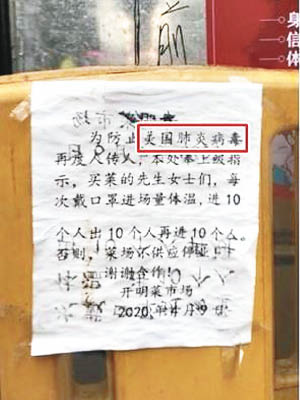 前
身
信
体
为防止美国肺炎病毒
再度人传人，本处奉上级指
示，买菜的先生女士们，每
次戴口罩进场量体温，进10
个人出10个人再进10个人。
否则，菜场 供应停业
谢谢合作！
开明菜市场
2020年4月9日